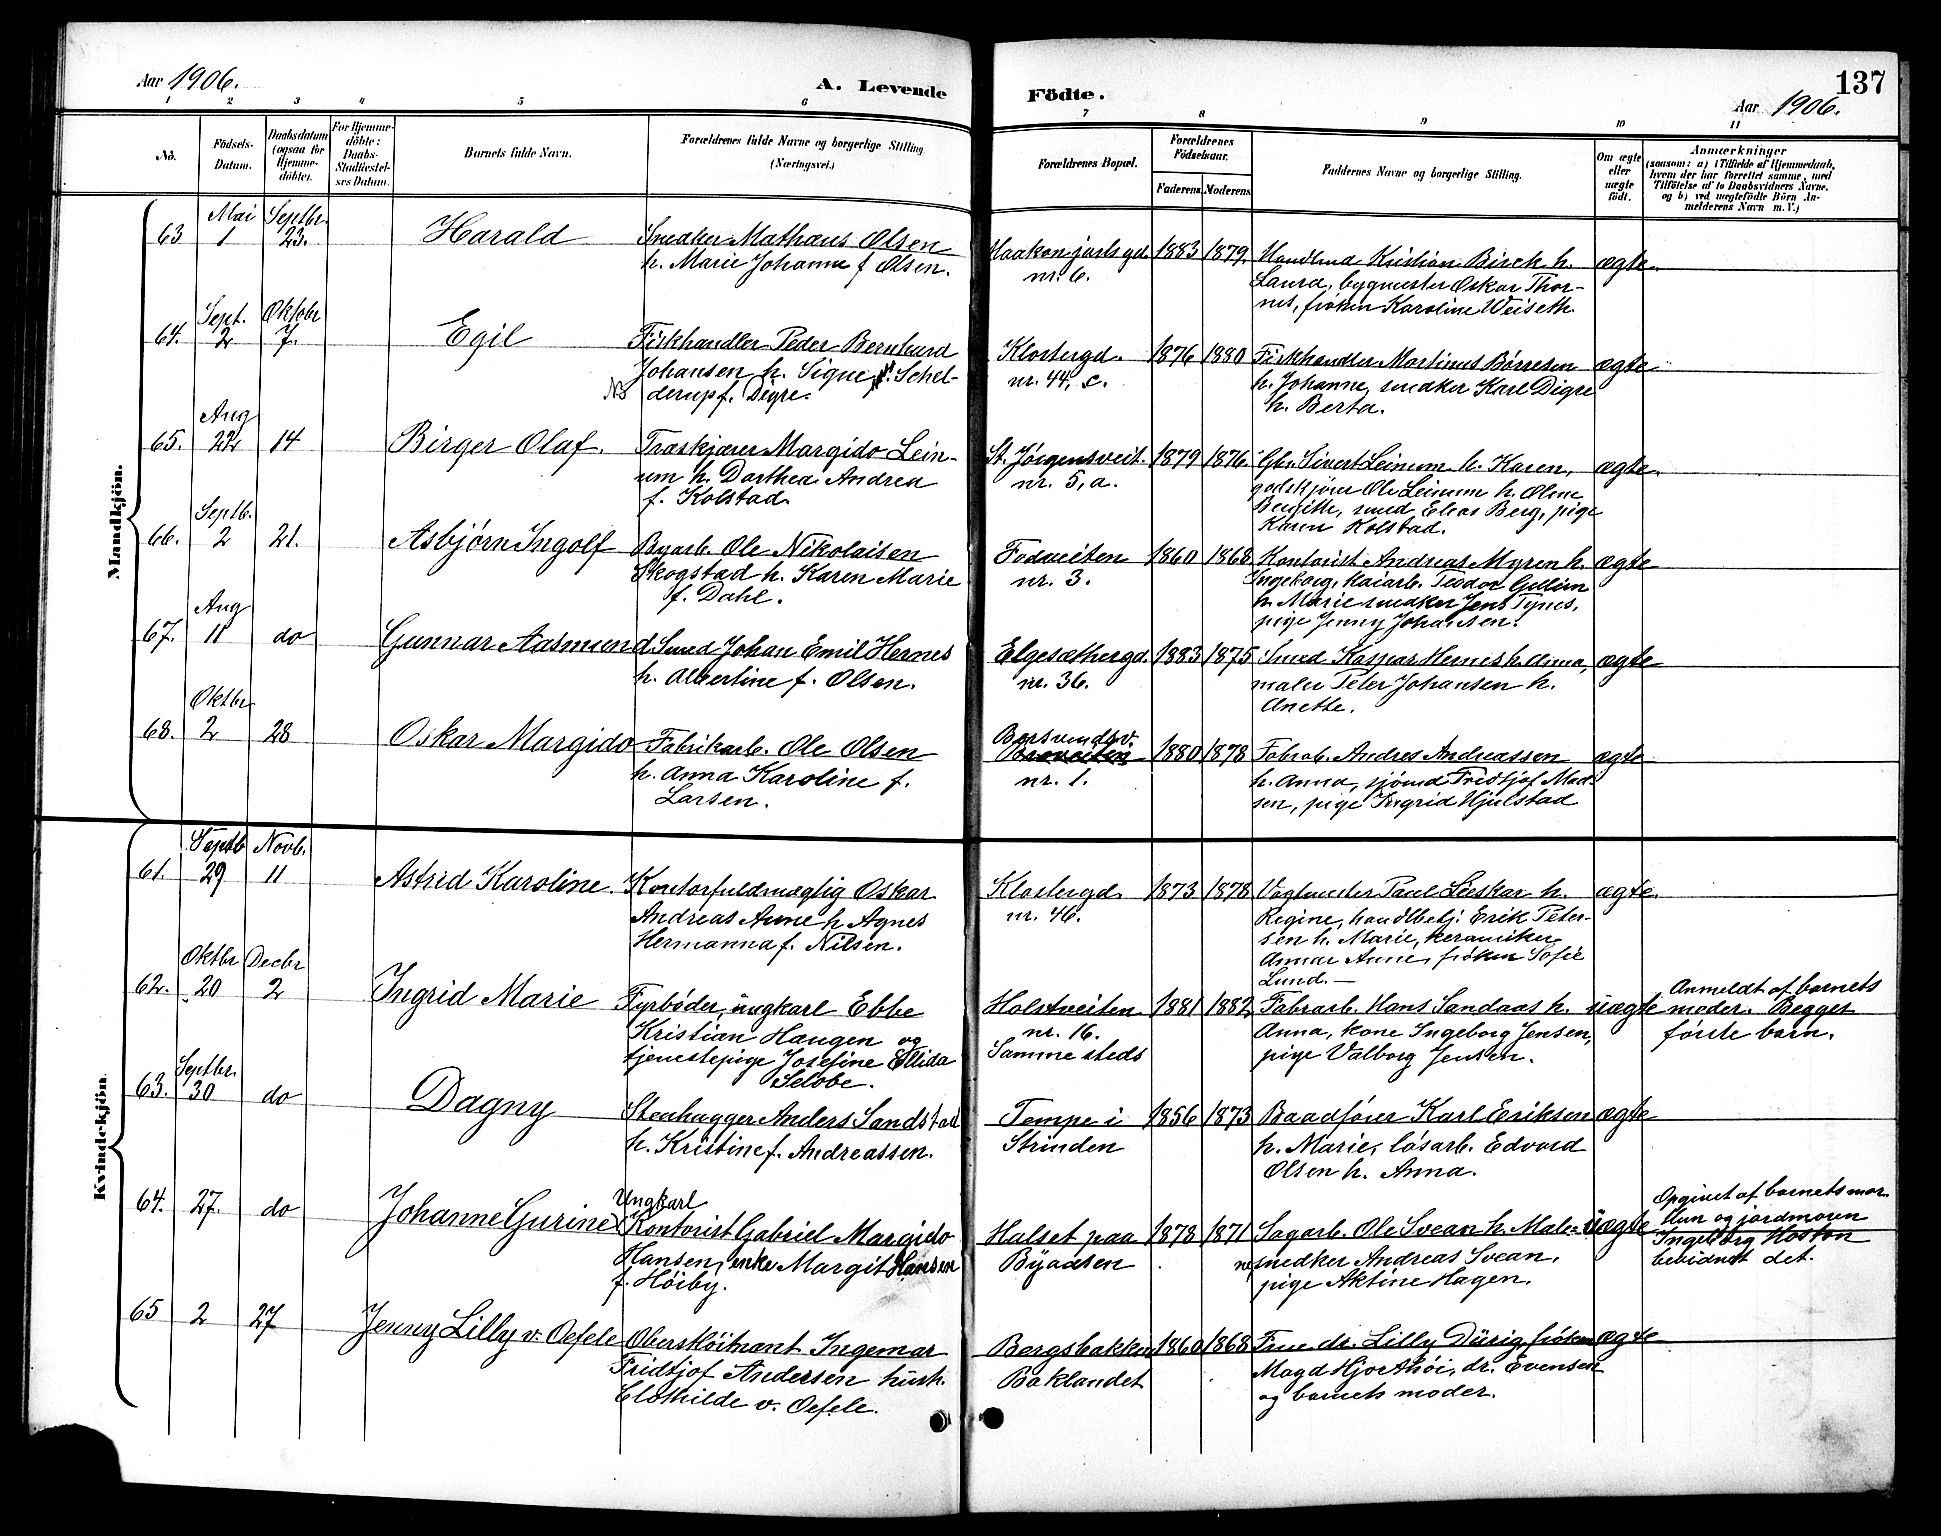 Aar 1906.
A. Levende
Födte.
137
Aar 1906.
1 2 3 4 5 6
7 8 9 10 11
No.
Födsels-
Datum.
Daabsdatum
(ogsaa for
Hjemme-
döbte).
For Hjemme-
döbte:
Daabs-
Stadfæstel-
ses Datum.
Barnets fulde Navn.
Forældrenes fulde Navne og borgerlige Stilling.
(Næringsvei.)
Forældrenes Bopæl.
Forældrenes
Födselsaar.
Faderens. Moderens.
Faddernes Navne og borgerlige Stilling.
Om ægte
eller
uægte
födt.
Anmærkninger
(saasom: a) i Tilfælde af Hjemmedaab,
hvem der har forrettet samme, med
Tilföielse af to Daabsvidners Navne,
og b) ved uægtefödte Börn An-
melderens Navn m. V.)
Mandkjön.
63 Mai 1 Septbr. 23. Harald
Snedker Mathæus Olsen
h. Marie Johanne f. Olsen.
Haakon jarls gd.
nr. 6.
1883 1879.
Handlmd Kristian Birch h.
Laura, bygmester Oskar Thor-
nes, frøken Karoline Weiseth.
ægte.
64. Sept. 2 Oktobr 7. Egil
Fiskhandler Peder Bernhard
Johansen h. Signe Schel-
NB derup f. Digre.
Klostergd.
nr. 44, c.
1876 1880
Fiskhandler Martinus Børresen
h. Johanne, snedker Karl Digre
h. Berta.
ægte
65. Aug 22 14 Birger Olaf.
Træskjærer Margido Lein-
um h. Dorthea Andrea
f. Kolstad
St. Jørgensveit.
nr. 5, a.
1879 1876
Gbr. Sivert Leinum h. Karen,
godskjører Ole Leinum h. Oline
Bergitte, smed Elias Berg, pige
Karen Kolstad.
ægte.
66. Septb. 2 21. Asbjørn Ingolf
Byarb. Ole Nikolaisen
Skogstad h. Karen Marie
f. Dahl.
Fodveiten
nr. 3.
1860 1868
Kontorist Andreas Myren h.
Ingeborg, kaiarb. Teodor
h. Marie snedker Jens Tynes,
pige Jenny Johansen.
ægte
67. Aug 11 do Gunnar Aasmund
Smed Johan Emil Hernes
h. Albertine f. Olsen.
Elgesæthergd.
nr. 36.
1883 1875
Smed Kaspar Hernes h.
maler Peter Johansen h.
Anette.
ægte
68. Oktbr 2 28 Oskar Margido
Fabrikarb. Ole Olsen
h. Anna Karoline f.
Larsen.
Bersvendsv.
nr. 1.
1880 1878
Fabrab. Andres Andreassen
h. Anna, sjömd Fredtjof Mad-
sen, pige Ingrid Hjulstad
ægte
Kvindekjön.
61. Septb 29 Novb. 11 Astrid Karoline.
Kontorfuldmægtig Oskar
Andreas Anne h. Agnes
Hermanna f. Nilsen.
Klostergd.
nr. 46.
1873 1878
Vagtmester Paul Leeskar h.
Regine, handlbetj. Erik Peter-
sen h. Marie, keramiker
Annar Anne, frøken Sofie
Lund. —
ægte.
62. Oktbr 20 Decbr 2 Ingrid Marie
Fyrbøder, ungkarl Ebbe
Kristian Haugen og
tjenestepige Josefine Ellida
Selobe.
Holstveiten
nr. 16.
Samme steds
1881 1882
Fabrarb. Hans Sandaas h.
Anna, kone Ingeborg Jensen,
pige Valborg Jensen.
uægte
Anmeldt af barnets
moder. Begges
første barn.
63. Septbr. 30 do Dagny
Stenhugger Anders Sandstad
h. Kristine f. Andreassen.
Tempe i
Strinden
1856 1873
Baadfører Karl Eriksen
h. Marie, løsarb. Edvard
Olsen h. Anna.
ægte
64. 27. do Johanne Gurine
Ungkarl
Kontorist Gabriel Margido
Hansen, enke Margit Hansen
f. Høiby.
Halset paa
Byaasen
1878 1871
Sagarb. Ole Svean h. Male-
ne, snedker Andreas Svean,
pige Aktine Hagen.
uægte
Opgivet af barnets mor.
Hun og jordmoren
Ingeborg Hoston
bevidnet det.
65 2 27 Jenny Lilly v. Oefele
Oberstløitnant Ingemar
Fridtjof Andersen hush.
Clothilde v. Oefele.
Bergsbakken
Baklandet
1860 1868
Frue dr. Lilly Dürig, frøken
Magd Hjorthøi, dr. Evensen
og barnets moder.
ægte